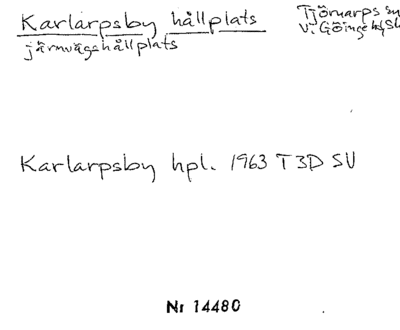 Karlarpsby hållplats
järnvägshållplats
Tjörnarps sn
V. Göinge hd Sk
Karlarpsby hpl. 1963 T3D SV
Nr 14480